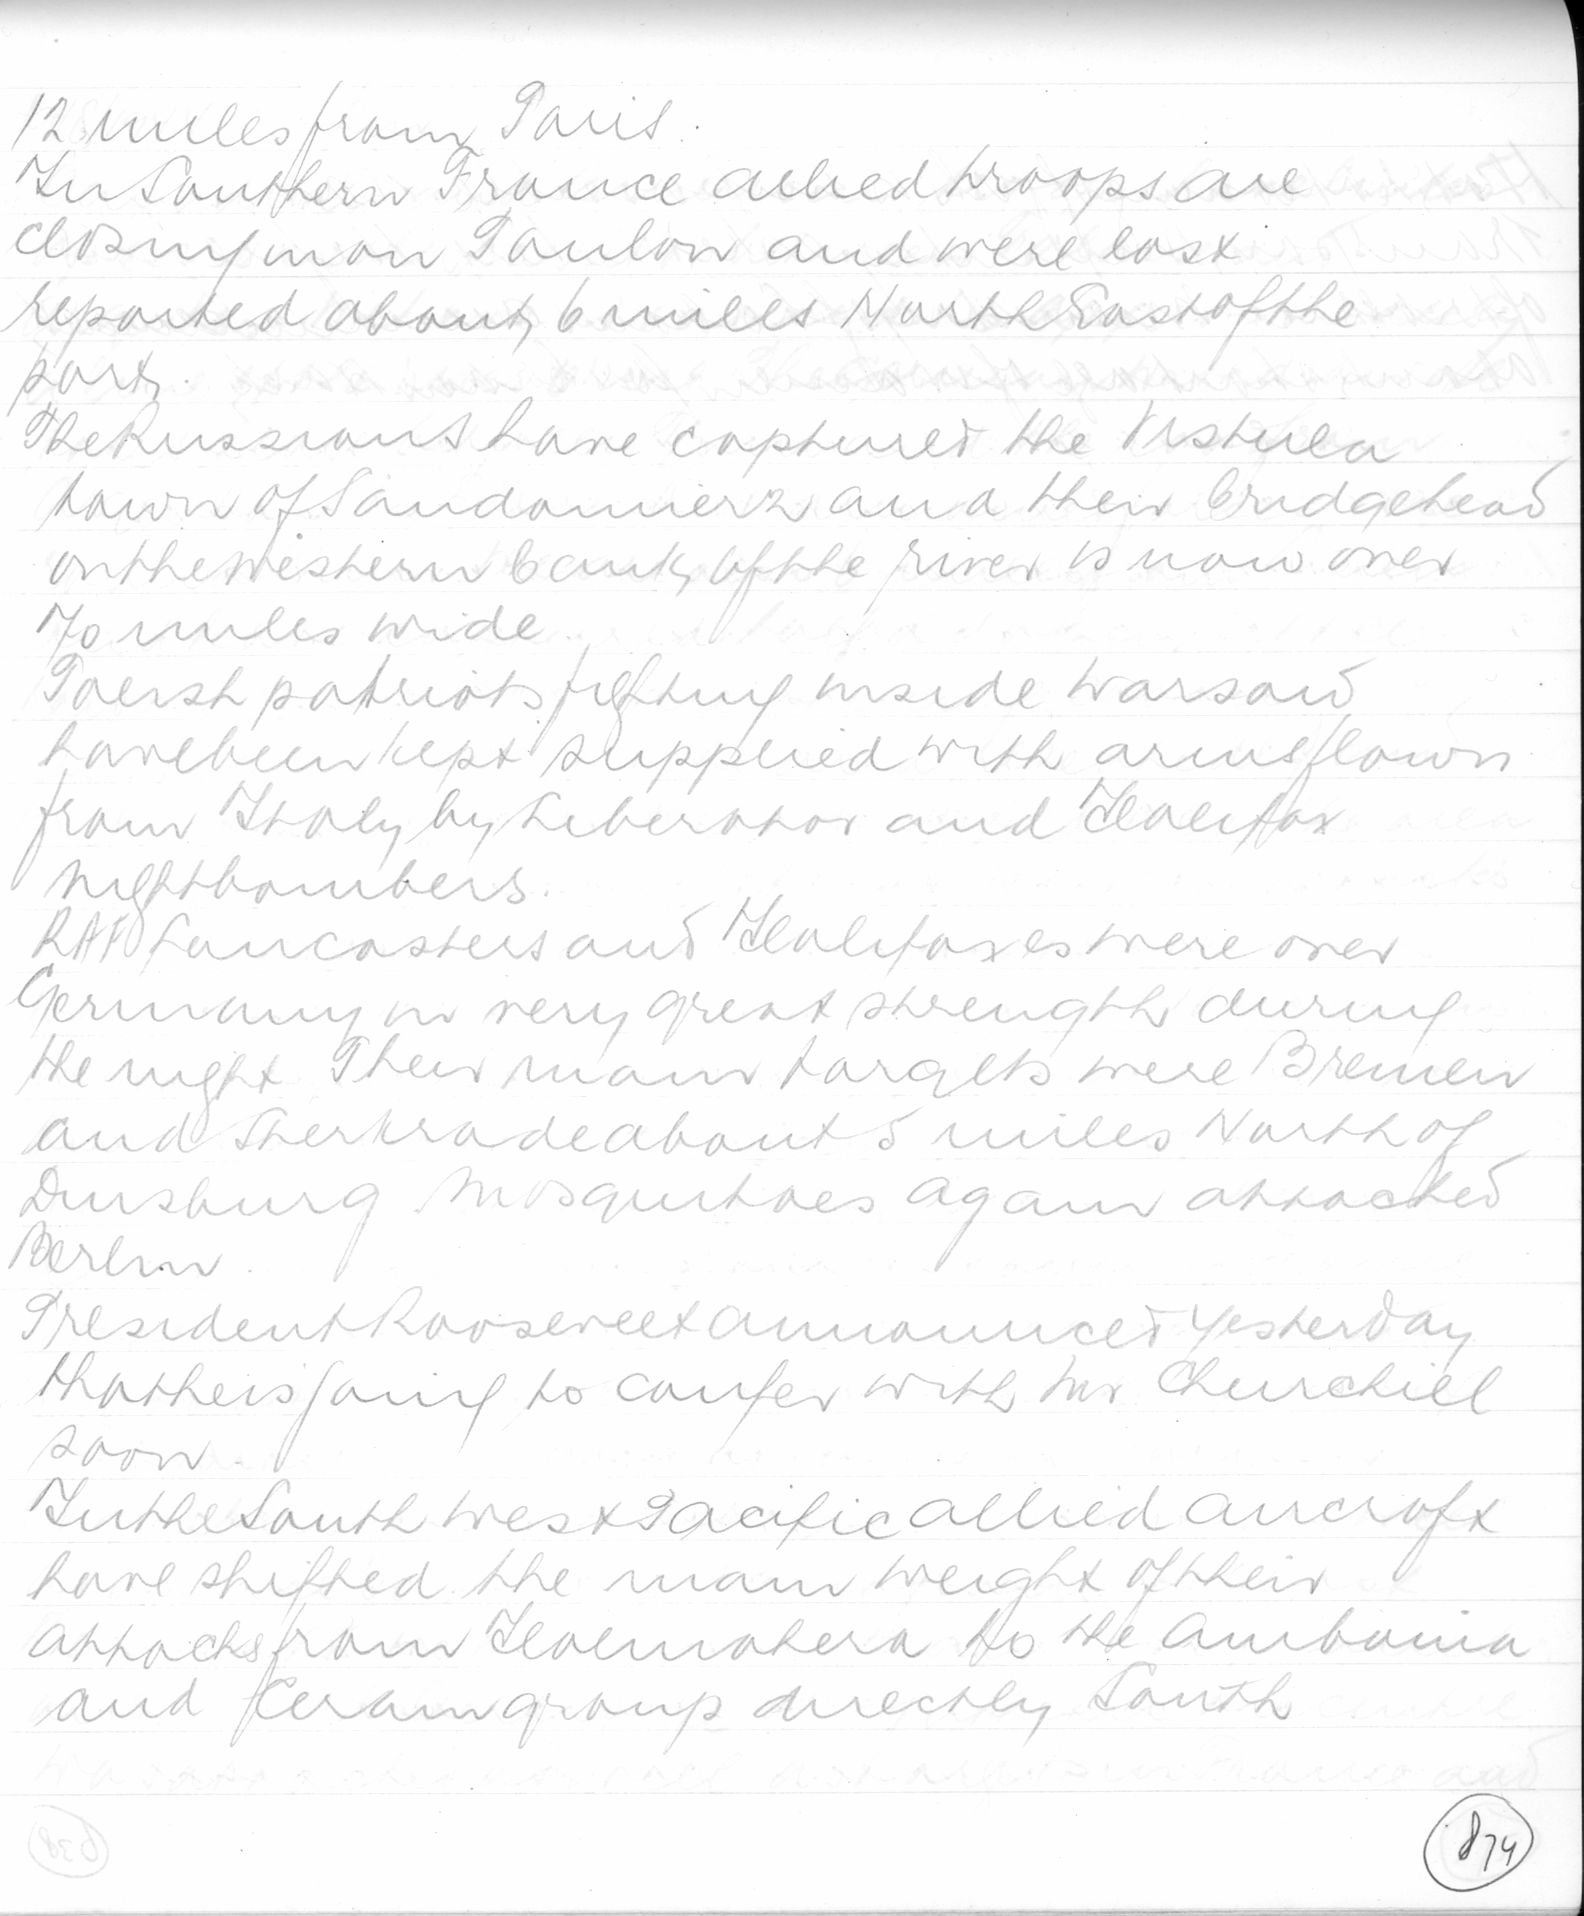 12 miles from Paris.
In Southern France allied troops are
closing in on Toulon and were last
reported about 6 miles North East of the
port.
The Russians have captured the Vistula
town of Sandomierz and their bridgehead
on the western bank of the river is now over
70 miles wide.
Polish patriots fighting inside Warsaw
have been kept supplied with arms flown
from Italy by Liberator and Halifax
night bombers.
RAF Lancasters and Halifaxes were over
Germany in very great strength during
the night. Their main targets were Bremen
and Sterkrade about 5 miles North of
Duisburg Mosquitoes again attacked
Berlin.
President Roosevelt announced yesterday
that he is going to confer with Mr Churchill
soon.
In the South West Pacific allied aircraft
have shifted the main weight of their
attacks from Halmahera to the Amboina
and Ceram group directly South
874